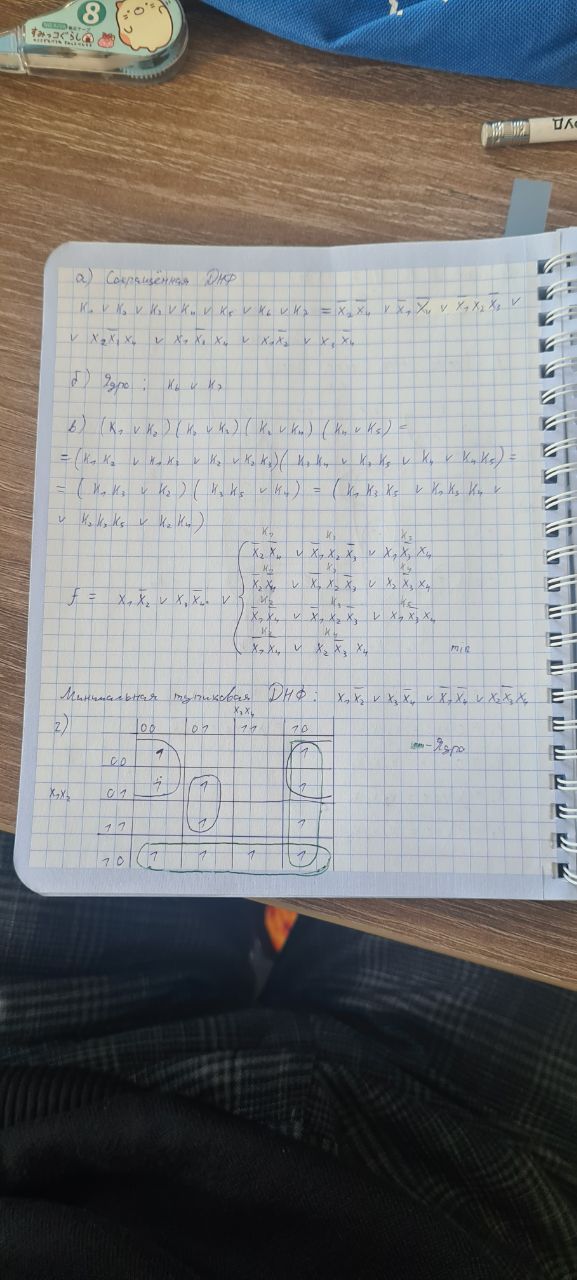 8
すみっコぐらし
руд
а) Сокращённая ДНФ
K₁ ∨ K₂ ∨ K₃ ∨ K₄ ∨ K₅ ∨ K₆ ∨ K₇ = x̄₂x̄₄ ∨ x̄₁x̄₄ ∨ x̄₁x₂x̄₃ ∨
∨ x₂x̄₃x₄ ∨ x₁x̄₃x₄ ∨ x₁x̄₂ ∨ x₃x̄₄
б) Ядро : K₆ ∨ K₇
в) (K₁ ∨ K₂)(K₂ ∨ K₃)(K₃ ∨ K₄)(K₄ ∨ K₅) =
=(K₁K₂ ∨ K₁K₃ ∨ K₂ ∨ K₂K₃)(K₃K₄ ∨ K₃K₅ ∨ K₄ ∨ K₄K₅) =
= (K₁K₃ ∨ K₂)(K₃K₅ ∨ K₄) = (K₁K₃K₅ ∨ K₁K₃K₄ ∨
∨ K₂K₃K₅ ∨ K₂K₄)
K₁ K₃ K₅
x̄₂x̄₄ ∨ x̄₁x₂x̄₃ ∨ x₁x̄₃x₄
K₁ K₃ K₄
x̄₂x̄₄ ∨ x̄₁x₂x̄₃ ∨ x₂x̄₃x₄
f = x₁x̄₂ ∨ x₃x̄₄ ∨
K₂ K₃ K₅
x̄₁x̄₄ ∨ x̄₁x₂x̄₃ ∨ x₁x̄₃x₄
K₂ K₄
x̄₁x̄₄ ∨ x₂x̄₃x₄ min
Минимальная тупиковая ДНФ: x₁x̄₂ ∨ x₃x̄₄ ∨ x̄₁x̄₄ ∨ x₂x̄₃x₄
г) x₃x₄
00 01 11 10
00 1 1
- Ядро
x₁x₂ 01 1 1 1
11 1 1
10 1 1 1 1